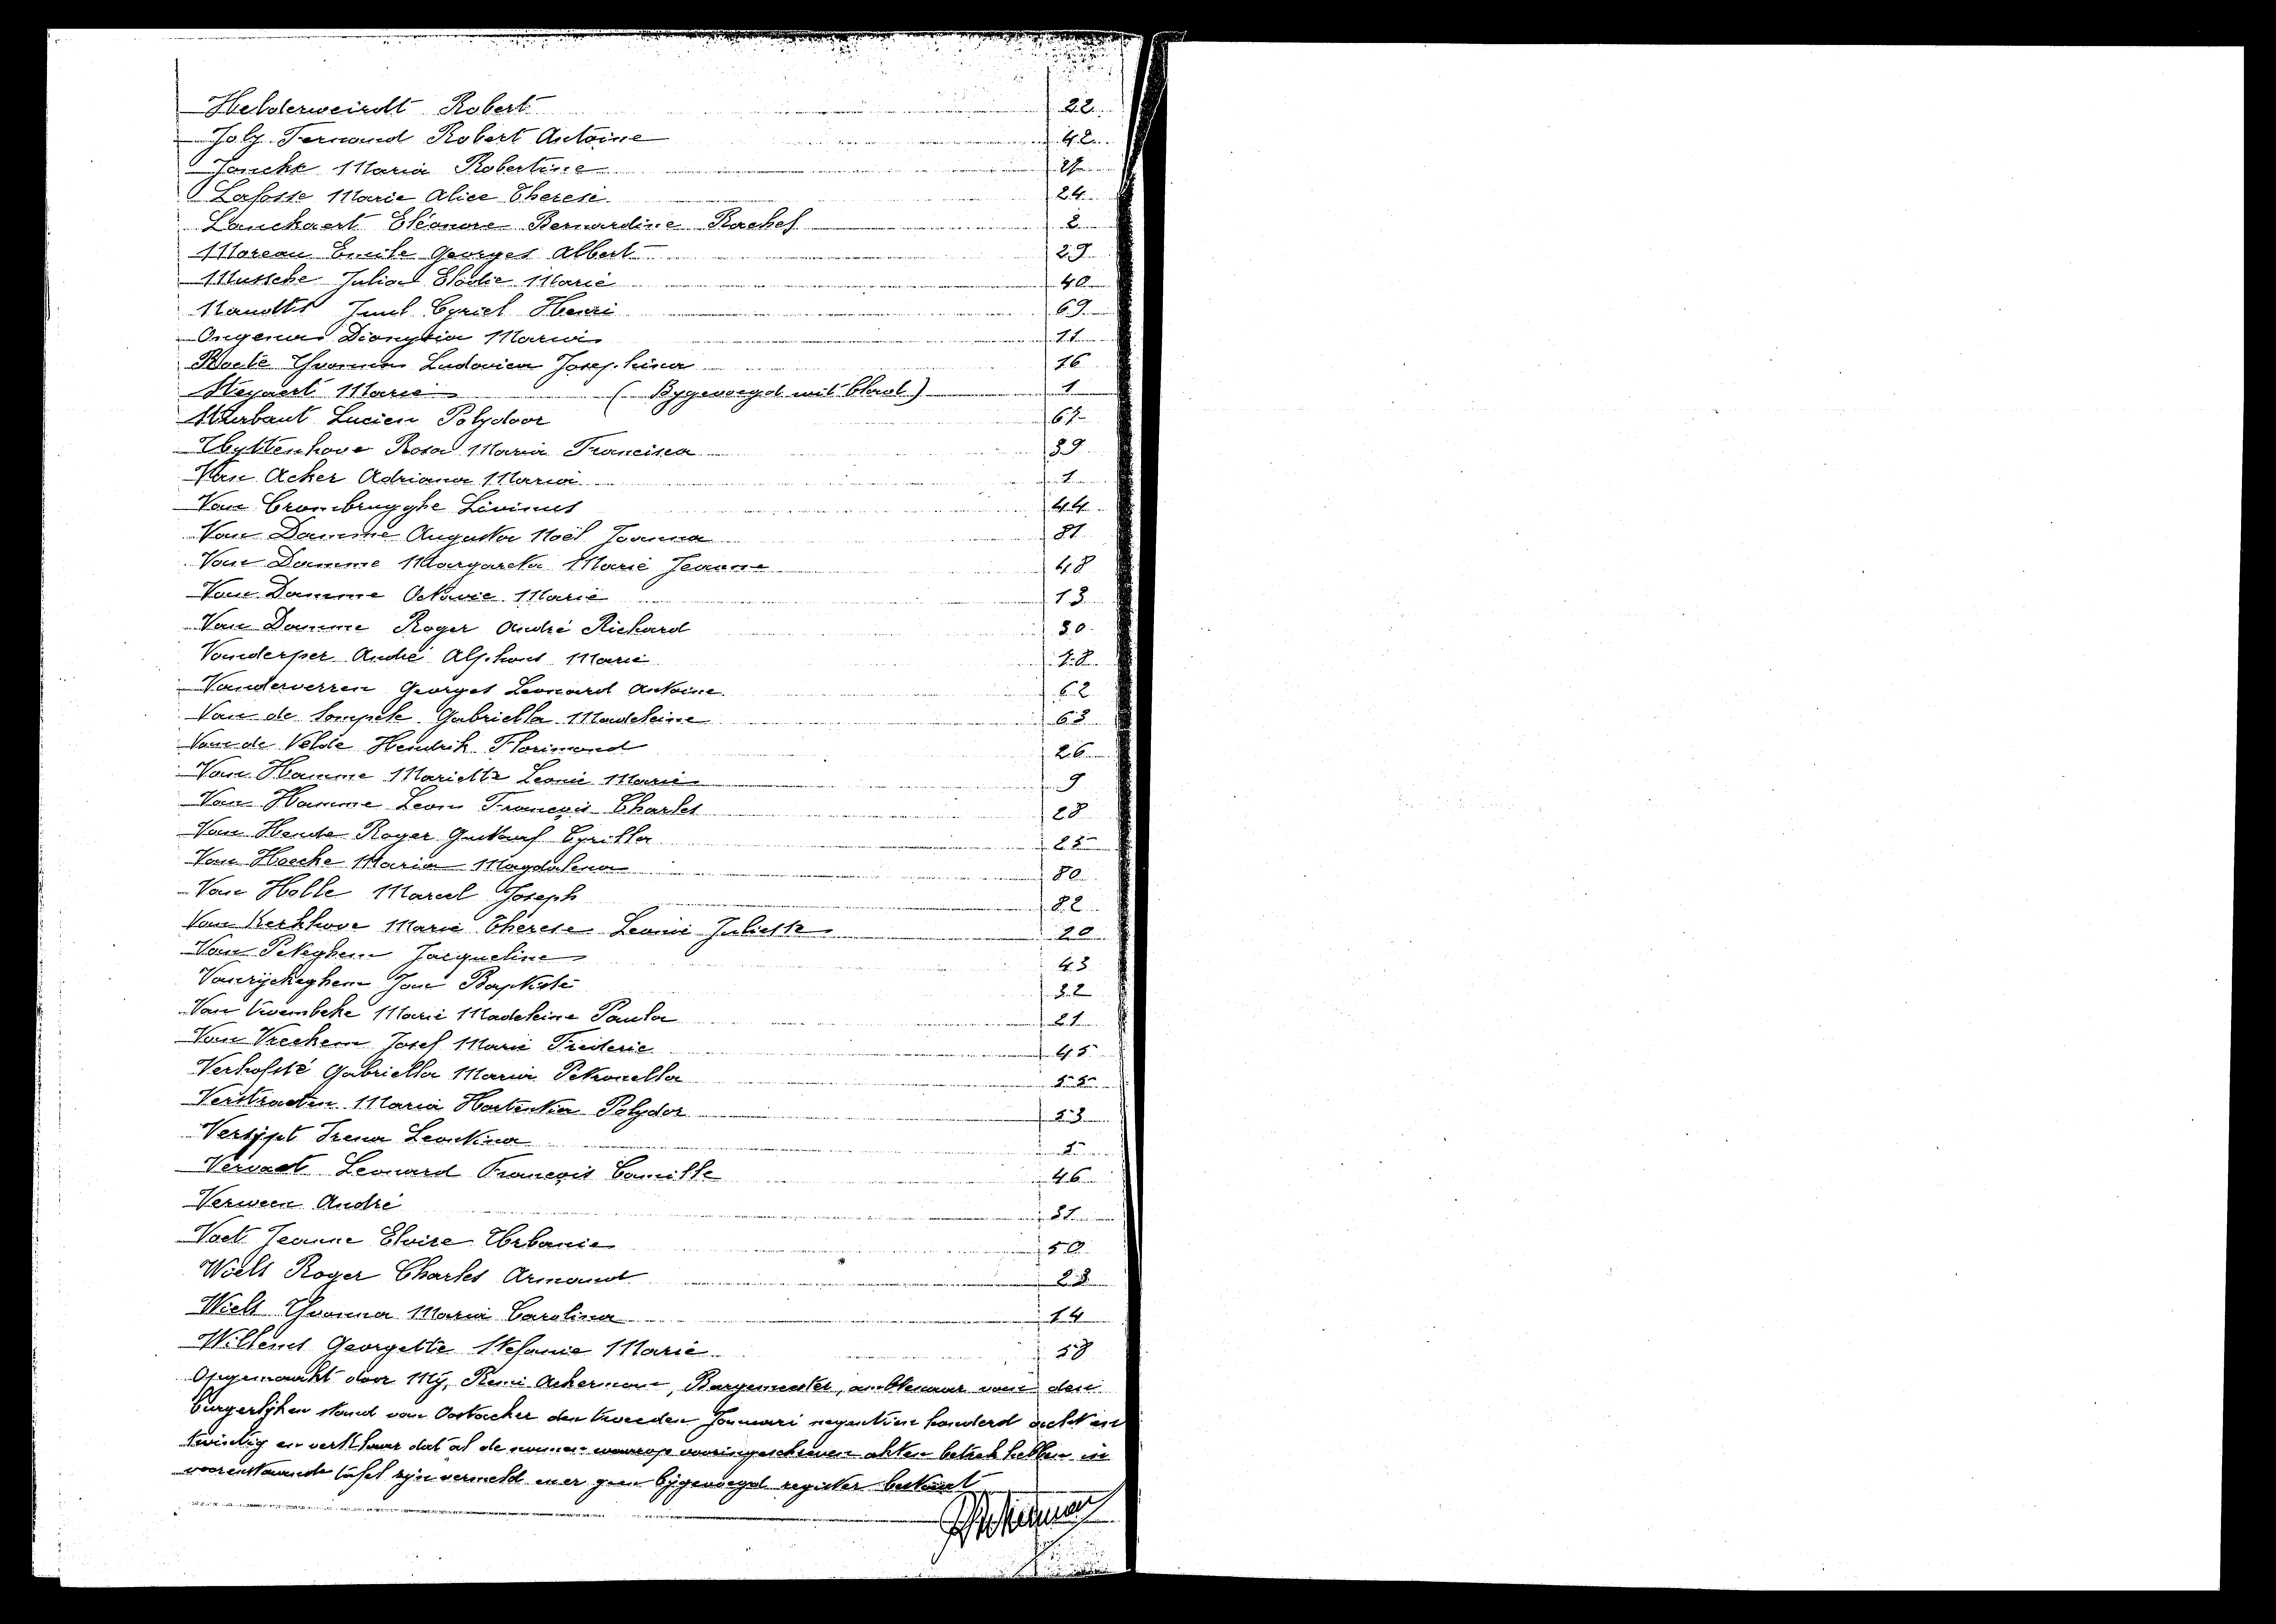 Helderweirdt Robert 22
Joly Fernand Robert Antoine 42
Joncke Maria Robertine
Lafosse Marie Alice Therese 24
Lanckaert Eléonore Bernardine Rachel 2
Moreau Emile Georges Albert 29
Mussche Julia Elodie Marie 40
Naudts Jmel Cyriel Henri 69
Ongena Dionysia Maria 11
Roels Yvonna Ludovica Josephina 16
Steyaert Marie (Bygevoegd wit blad) 1
Sturbaut Lucien Polydoor 67
Uyttenhove Rosa Maria Francisca 39
Van Acker Adriana Maria 1
Van Crombrugghe Livinus 44
Van Damme Augusta Noël Joanna 81
Van Damme Margareta Marie Jeanne 48
Van Damme Octavie Marie 13
Van Damme Roger André Richard 30
Vanderper André Alphons Marie
Vanderverren Georges Leonard Antoine 62
Van de Sompele Gabriella Madeleine 63
Van de Velde Hendrik Florimond 26
Van Hamme Mariette Leonie Marie 9
Van Hamme Leon François Charles 28
Van Hende Roger Gustaaf Cyrilla 25
Van Hoecke Maria Magdalena 80
Van Holle Marcel Joseph 82
Van Kerkhove Marie Therese Leonie Juliette 20
Van Peteghem Jacqueline 43
Vanryckeghem Jan Baptiste 32
Van Vaerenbeke Marie Madeleine Paula 21
Van Vreckem Josef Marie Frederic 45
Verhofsté Gabriella Maria Petronella 55
Verstraeten Maria Hortentia Polydor 53
Versypt Irena Leontina 5
Vervaet Leonard François Camille 46
Verween André
Voet Jeanne Elvire Urbanie 50
Wiels Roger Charles Armand 23
Wiels Yvonna Maria Carolina 14
Willems Georgette Stefanie Marie 58
Opgemaakt door Mij, Remi Ackerman, Burgemeester, ambtenaar van den
burgerlijken stand van Oostacker den tweeden Januari negentien honderd acht en
twintig en verklaar dat al de namen waarop vooringeschreven akten betrek hebben in
voorenstaande tafel zijn vermeld en er geen bijgevoegd register bestaat